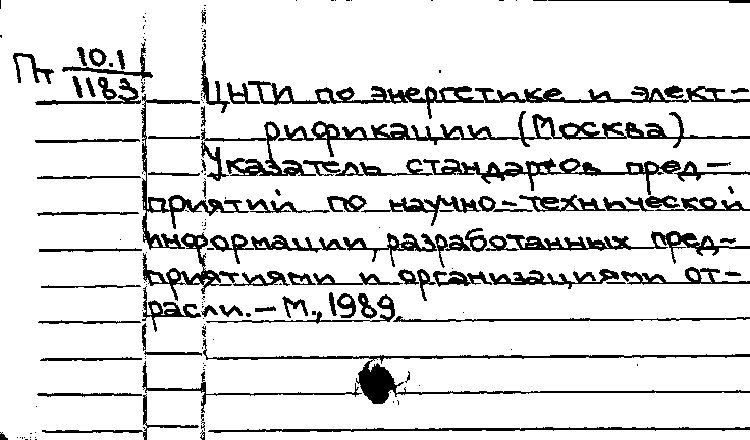 Пт 10.1
1183
ЦНТИ по энергетике и элект-
рификации (Москва).
Указатель стандартов пред-
приятий по научно-технической
информации, разработанных пред-
приятиями и организациями от-
расли. – М., 1989.